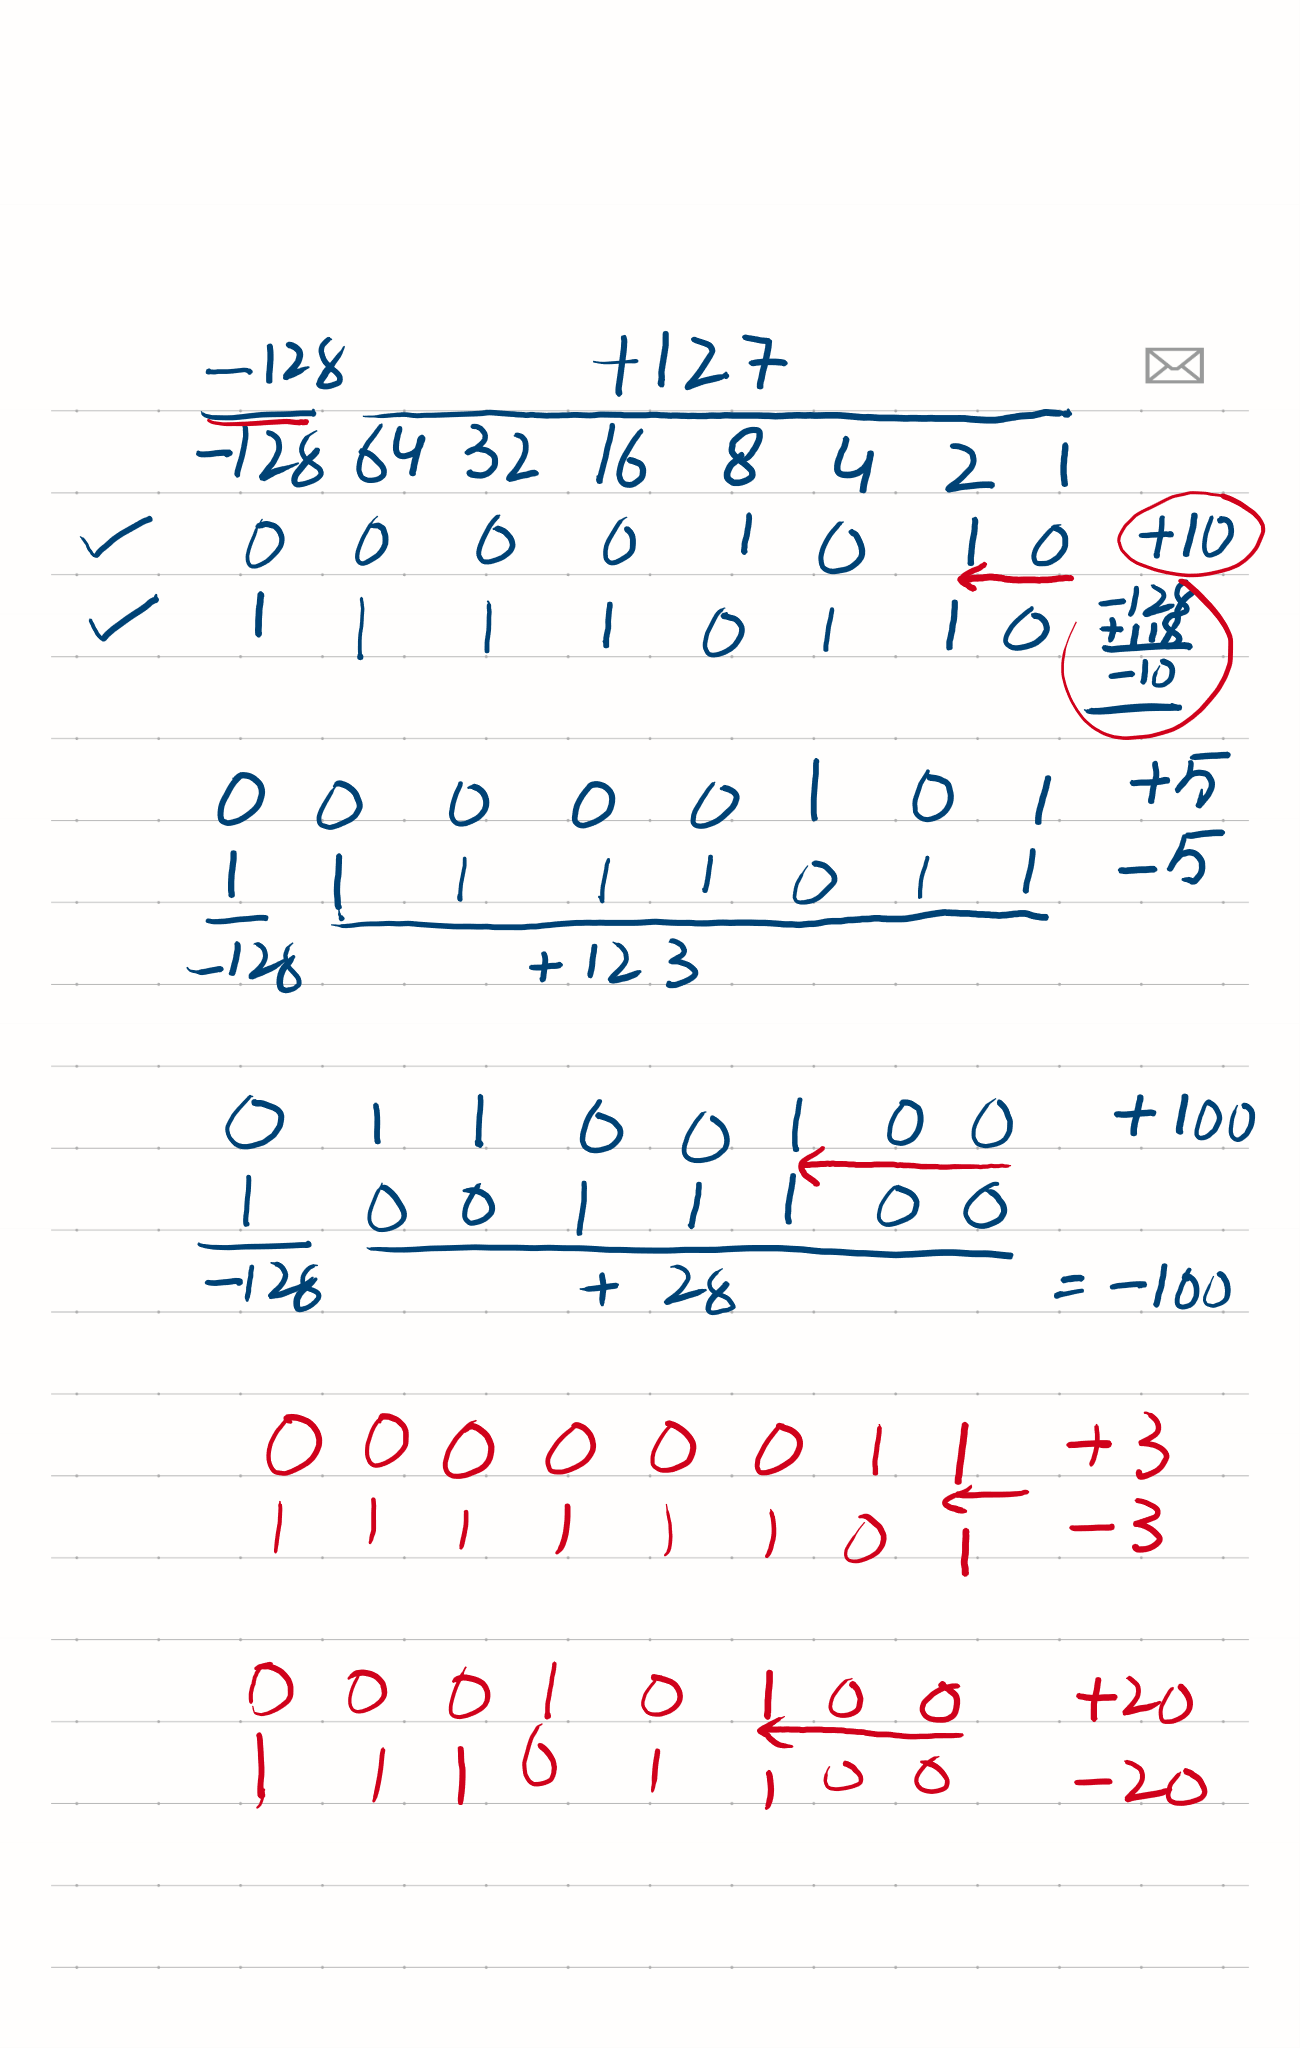 -128 +127
-128 64 32 16 8 4 2 1
0 0 0 0 1 0 1 0 +10
1 1 1 1 0 1 1 0 -128
+118
-10
0 0 0 0 0 1 0 1 +5
1 1 1 1 1 0 1 1 -5
-128 +123
0 1 1 0 0 1 0 0 +100
1 0 0 1 1 1 0 0
-128 + 28 = -100
0 0 0 0 0 0 1 1 +3
1 1 1 1 1 1 0 1 -3
0 0 0 1 0 1 0 0 +20
1 1 1 0 1 1 0 0 -20